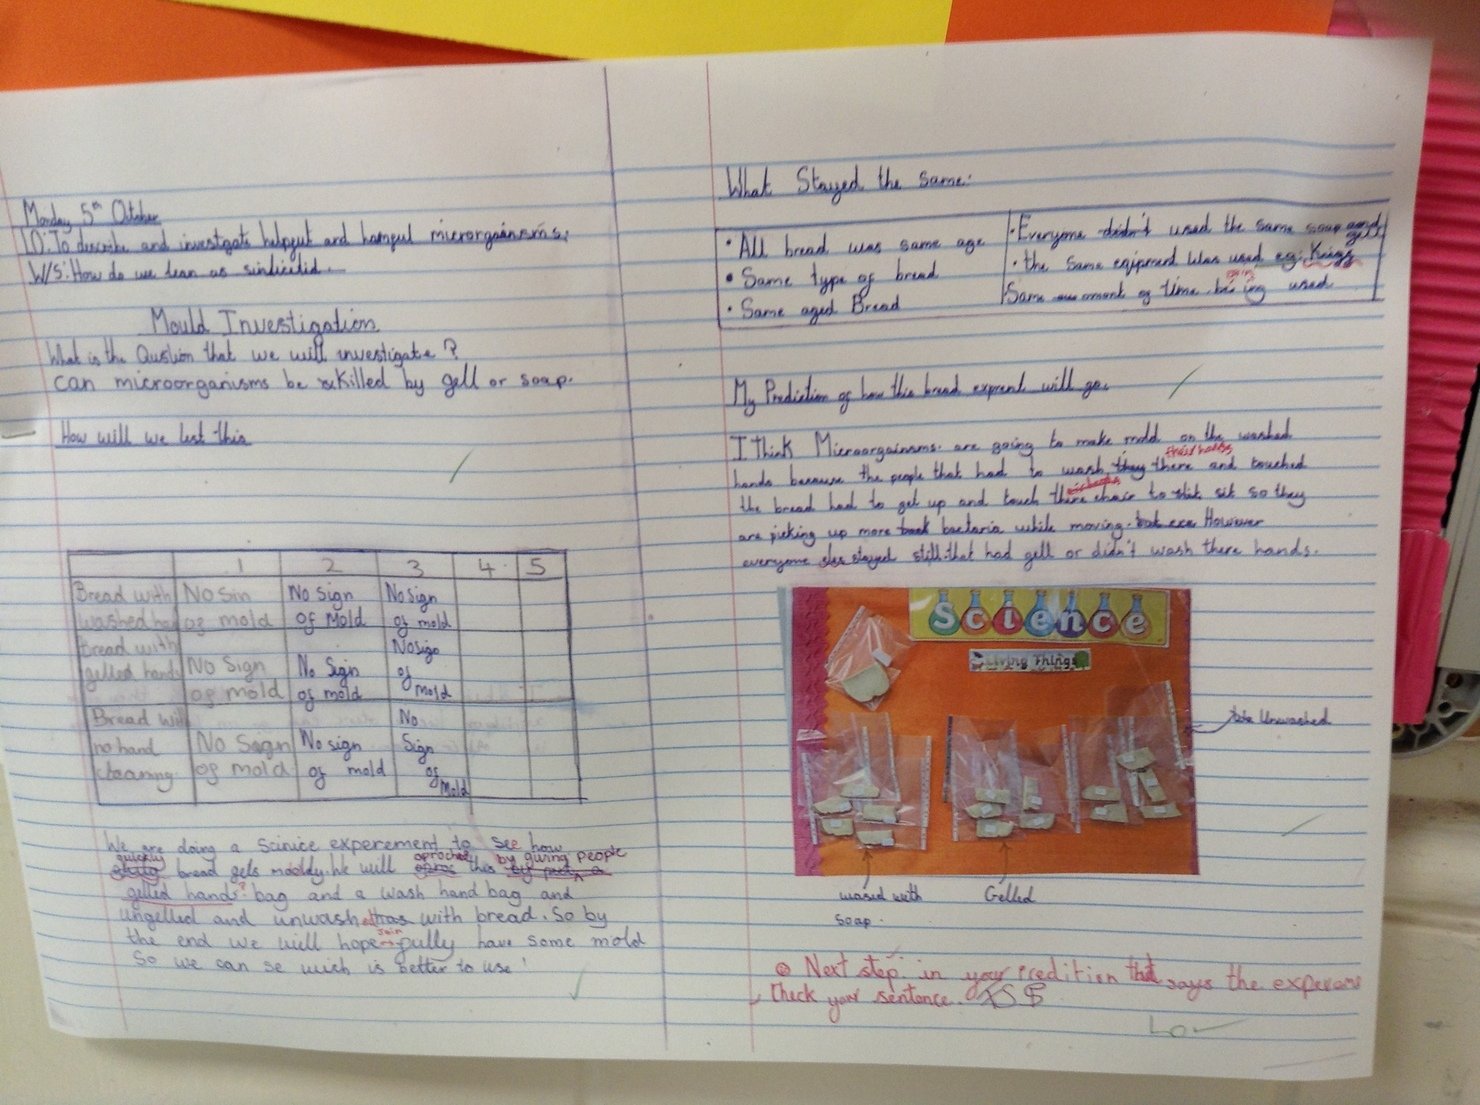 Monday 5th October
LO: To describe and investigate helpful and harmful microrganisms.
W/S: How do we lean as
Mould Investigation
What is the Qustion that we will investigate?
can microorganisms be killed by gell or soap.
How will we test this
1 2 3 4 5
Bread with washed hand
No Sin of mold
No Sign of Mold
No Sign of mold
bread with gelled hands
No Sign of mold
No Sign of mold
No sign of mold
Bread with no hand cleaning
No Sogn of mold
No sign of mold
No Sign of Mold
We are doing a Scinice experement to see how
quickly bread gets moldy. We will aproche this by giving people
gelled hands? bag and a wash hand bag and
ungelled and unwash with bread. So by
the end we will hope fully have some mold
join
So we can se wich is better to use!
What Stayed the same:
• All bread was same age
• Same type of bread
• Same aged Bread
• Everyone didn't used the same soap and gell
• the same eqipment was used eg:
Same amont of time being used
My Prediction of how this bread exprent will go.
I think Microorgainsms. are going to make mold on the washed
their hands
hands because the people that had to wash they there and touched
the bread had to get up and touch there chair to sit so they
are picking up more bacteria while moving. However
everyone stayed still that had gell or didn't wash there hands.
Science
Living Things
Unwashed
wased with
soap.
Gelled
Next step. in your Predition that says the experems
Check your sentence.
LO